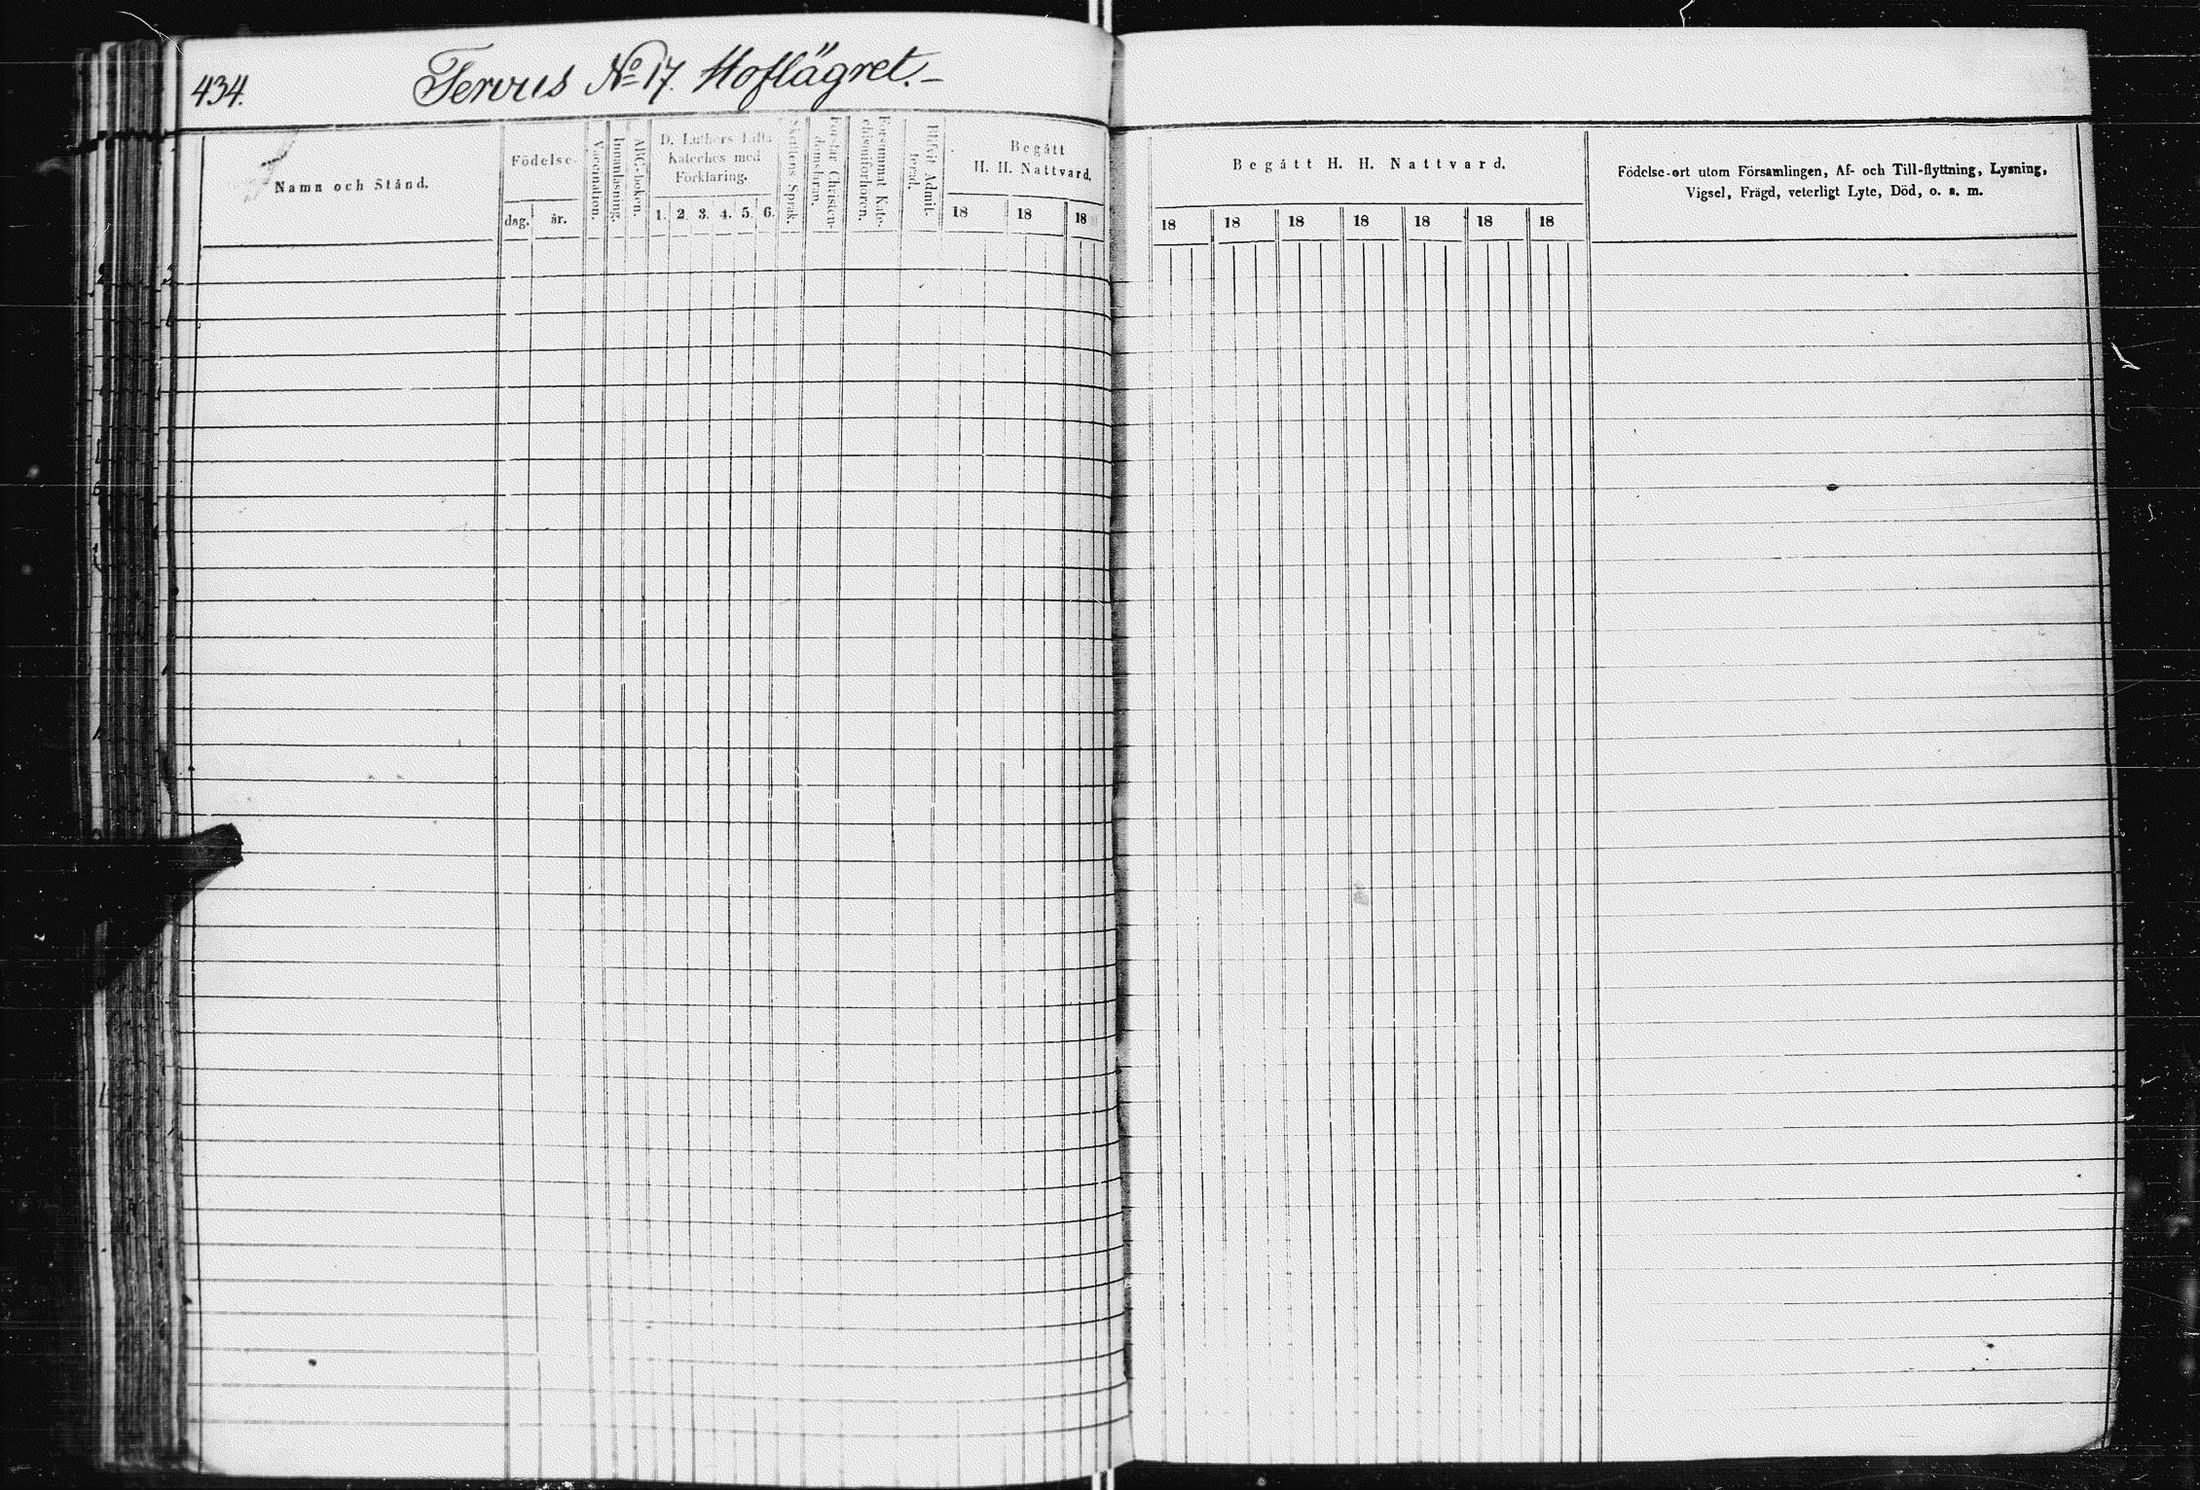 434.
Tervus No 17. Hoflägret.-
Namn och Stånd.
Födelse-
dag. år.
Vaccination.
Innanläsning.
ABC-boken.
D. Luthers Lilla
Kateches med
Förklaring.
1. 2. 3. 4. 5. 6.
Skriftens Språk.
Förstår Christen-
domsläran.
Försummat Kate-
chismiförhören.
Blifvit Admit-
terad.
Begått
H. H. Nattvard.
18 18 18
Begått H. H. Nattvard.
18 18 18 18 18 18 18
Födelse-ort utom Församlingen, Af- och Till-flyttning, Lysning,
Vigsel, Frägd, veterligt Lyte, Död, o. s. m.